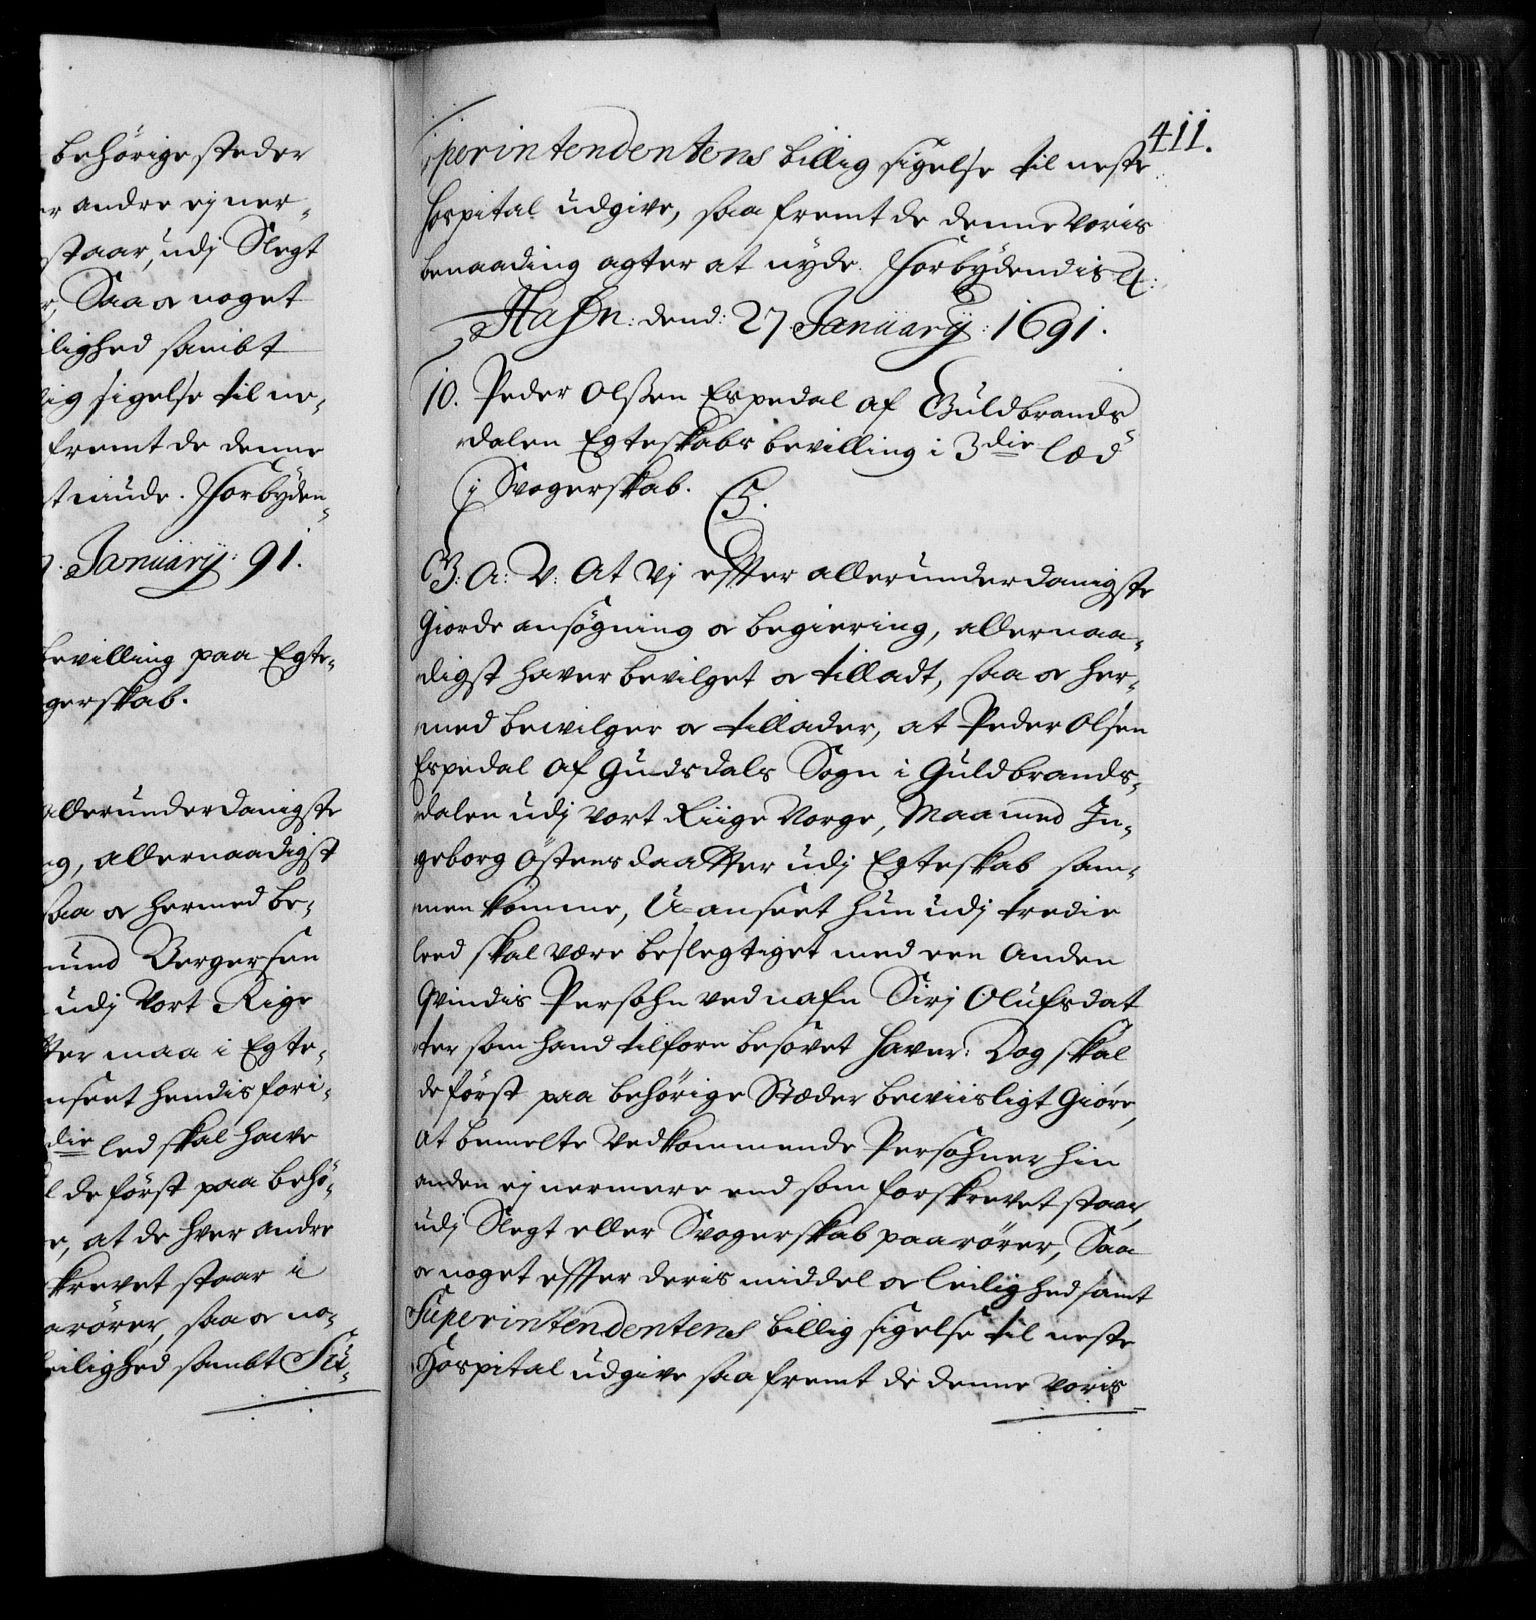 behörige steder
er andre ej ner-
staar, udj Slegt
r, Saa oc noget
ilighed sambt
lig sigelse til ne-
fremt de denne
st niude. Forbyden-
January: 91.
bevilling paa Egte-
gerskab.
allerunderdanigste
ng, allernaadigst
saa oc hermed be-
mund Bergersen
udj Vort Rige
tter maa i Egte-
nseet hendis fori-
die led skal have
l de först paa behö-
e, at de hver andre
skrevet staar i
arörer, saa oc no-
eilighed sambt Su-
411.
perintendentens billig sigelse til neste
Hospital udgive, saa fremt de denne Voris
benaading agter at nyde. Forbydendis &:
Hafn: dend: 27 January: 1691.
10. Peder Olssen Espedal af Guldbrands-
dalen Egteskabs bevilling i 3die læd
i Svogerskab.
C5.
G: A: V: At Vj effter allerunderdanigste
Giorde ansögning oc begiering, allernaa-
digst haver bevilget oc tilladt, saa oc her-
med bewilger oc tillader, at Peder Olsen
Espedal af Gudsdals Sogn i Guldbrands-
dalen udj vort Riige Norge, Maa med In-
geborg Östensdaatter udj Egteskab sam-
men komme, U-anseet hun udj tredie
leed skal være beslegtiget med een Anden
Qvindis Persohn ved nafn Sirj Olufsdat
ter som hand tilforn besovet haver: Dog skal
de först paa behörige Stæder bewiisligt Giöre,
at bemelte Vedkommende Persohner hin
anden ej nermere end som forskrevet staar,
udj Slegt eller Svogerskab paarörer, Saa
oc noget effter deris middel oc leilighed samt
Superintendentens billig sigelse til neste
Hospital udgive saa fremt de denne Voris